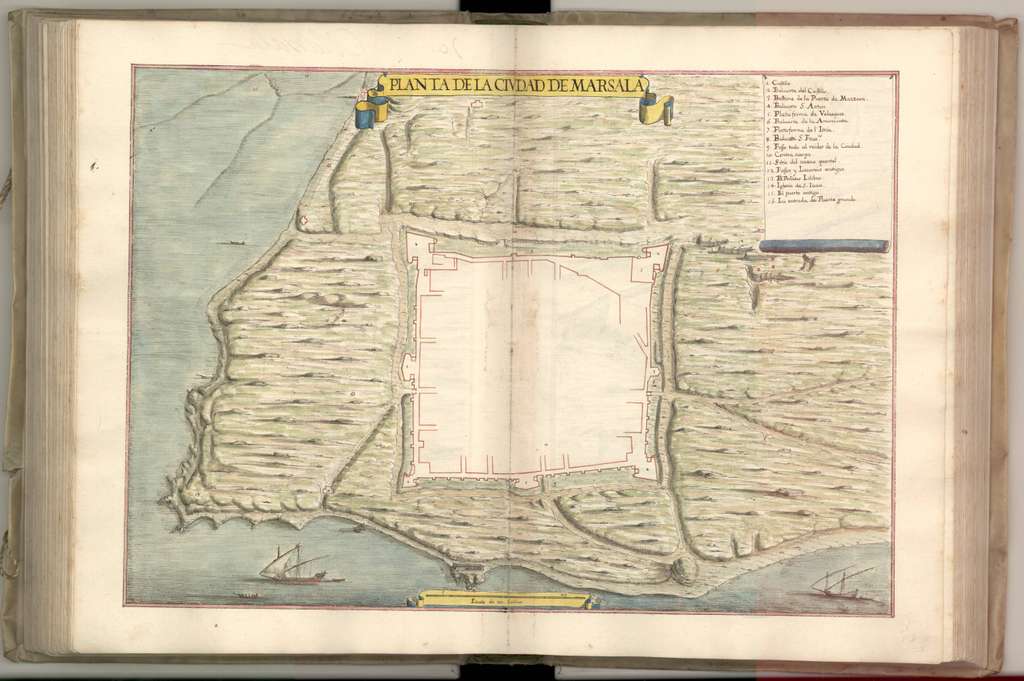 PLANTA DE LA CIVDAD DE MARSALA
1. Castillo
2. Baluarte del Castillo.
3. de la Puerta de Mazzara.
4. Baluarte S. Anton
5. Plataforma de Velasques
6. Baluarte de la
7. Plataforma de
8. Baluarte S. Fran.co
9. Foso todo al redor de la Ciudad
10. Contra escarpa
11. del nuevo quartel
12. Fosos y antiguos
13. Lilibeo
14. Iglesia de S. Juan
15. El puerto antigo
16. La entrada del Puerto grande